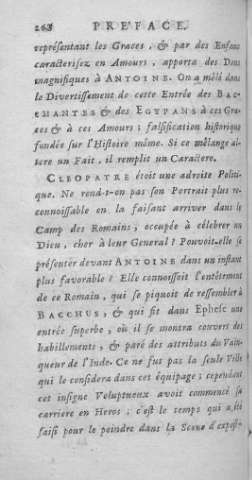 268 PREFACE.
representant les Graces, & par des Enfans
caracterisez en Amours, apporta des Dons
magnifiques à ANTOINE. On a mêlé dans
le Divertissement de cette Entrée des BAC-
CHANTES & des EGYPANS à ces Gra-
ces & à ces Amours; falsification historique
fondée sur l'Histoire même. Si ce mêlange al-
tere un Fait, il remplit un Caractere.
CLEOPATRE étoit une adroite Politi-
que. Ne rend-t-on pas son Portrait plus re-
connoissable en la faisant arriver dans le
Camp des Romains, occupée à célébrer un
Dieu, cher à leur General? Pouvoit-elle se
présenter devant ANTOINE dans un instant
plus favorable? Elle connoissoit l'entêtement
de ce Romain, qui se piquoit de ressembler à
BACCHUS, & qui fit dans Ephese une
entrée superbe, où il se montra couvert des
habillements, & paré des attributs du Vain-
queur de l'Inde. Ce ne fut pas la seule Ville
qui le considera dans cet équipage; cependant
cet insigne Voluptueux avoit commencé sa
carriere en Heros; c'est le temps qui a été
saisi pour le peindre dans la Scene d'exposi-